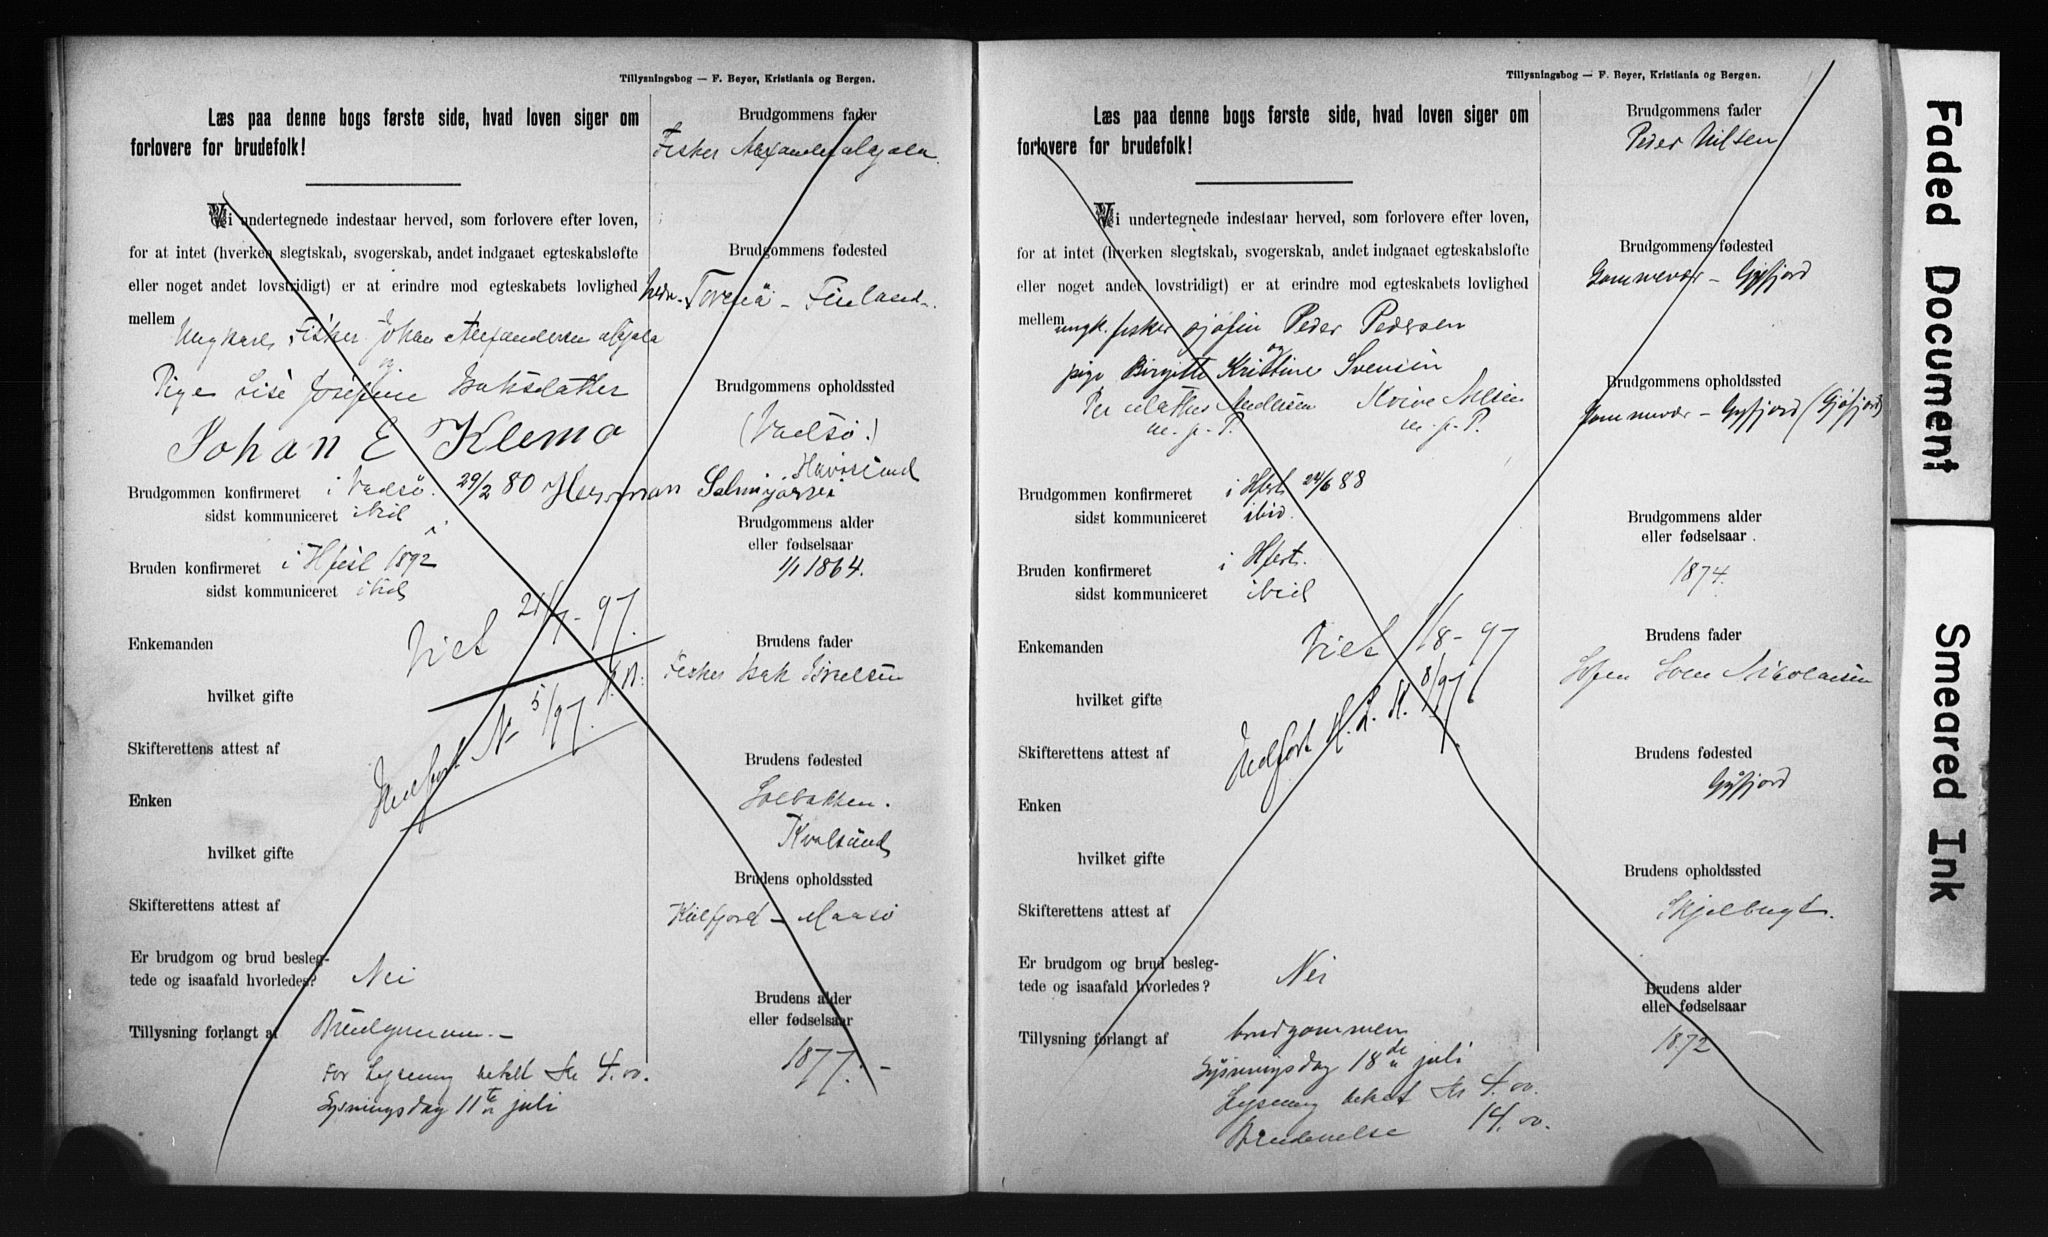 Tillysningsbog — F. Beyer, Kristiania og Bergen.
Læs paa denne bogs første side, hvad loven siger om
forlovere for brudefolk!
Vi undertegnede indestaar herved, som forlovere efter loven,
for at intet (hverken slegtskab, svogerskab, andet indgaaet egteskabsløfte
eller noget andet lovstridigt) er at erindre mod egteskabets lovlighed
mellem
Ungkarl, Fisker Johan Alexandersen
og
Pige Lise Josefine Isaksdatter
Johan E Klemo
Brudgommen konfirmeret i Vadsø. 29/2 80 Herman
sidst kommuniceret ibid
Bruden konfirmeret i Hfest 1892
sidst kommuniceret ibid
Enkemanden
Viet 21/7-97.
hvilket gifte
Indført 5/97.
Skifterettens attest af
Enken
hvilket gifte
Skifterettens attest af
Er brudgom og brud besleg-
tede og isaafald hvorledes? Nei
Tillysning forlangt af Brudgommen. -
For Lysning betalt Kr 4.00.
Lysningsdag 11te juli
Brudgommens fader
Fisker Alexander
Brudgommens fødested
Torneå - Finland.
Brudgommens opholdssted
(Vadsø.)
Havøsund
Brudgommens alder
eller fødselsaar
1/1 1864.
Brudens fader
Fisker Isak
Brudens fødested
Solbakken.
Kvalsund
Brudens opholdssted
Kulfjord - Maasø
Brudens alder
eller fødselsaar
1877. -
Tillysningsbog — F. Beyer, Kristiania og Bergen.
Læs paa denne bogs første side, hvad loven siger om
forlovere for brudefolk!
Vi undertegnede indestaar herved, som forlovere efter loven,
for at intet (hverken slegtskab, svogerskab, andet indgaaet egteskabsløfte
eller noget andet lovstridigt) er at erindre mod egteskabets lovlighed
mellem ungk. fisker sjøfin Peder Pedersen
og
pige Birgitte Kristine Svensen
Per Mathis Andersen
m. p. P. m. p. P.
Brudgommen konfirmeret i Hfest 24/6 88
sidst kommuniceret ibid.
Bruden konfirmeret i Hfest.
sidst kommuniceret ibid
Enkemanden
Viet 1/8-97
hvilket gifte
Indført H. L. K. 8/97.
Skifterettens attest af
Enken
hvilket gifte
Skifterettens attest af
Er brudgom og brud besleg-
tede og isaafald hvorledes? Nei
Tillysning forlangt af brudgommen
Lysningsdag 18de juli
Lysning betalt Kr 4.00
Brudevielse 14.00.
Brudgommens fader
Peder Nilsen
Brudgommens fødested
Gommevær -
Brudgommens opholdssted
Gommevær -
Brudgommens alder
eller fødselsaar
1874.
Brudens fader
Sven Nikolaisen
Brudens fødested
Brudens opholdssted
Skjelbugt.
Brudens alder
eller fødselsaar
1872
Faded Document
Smeared Ink